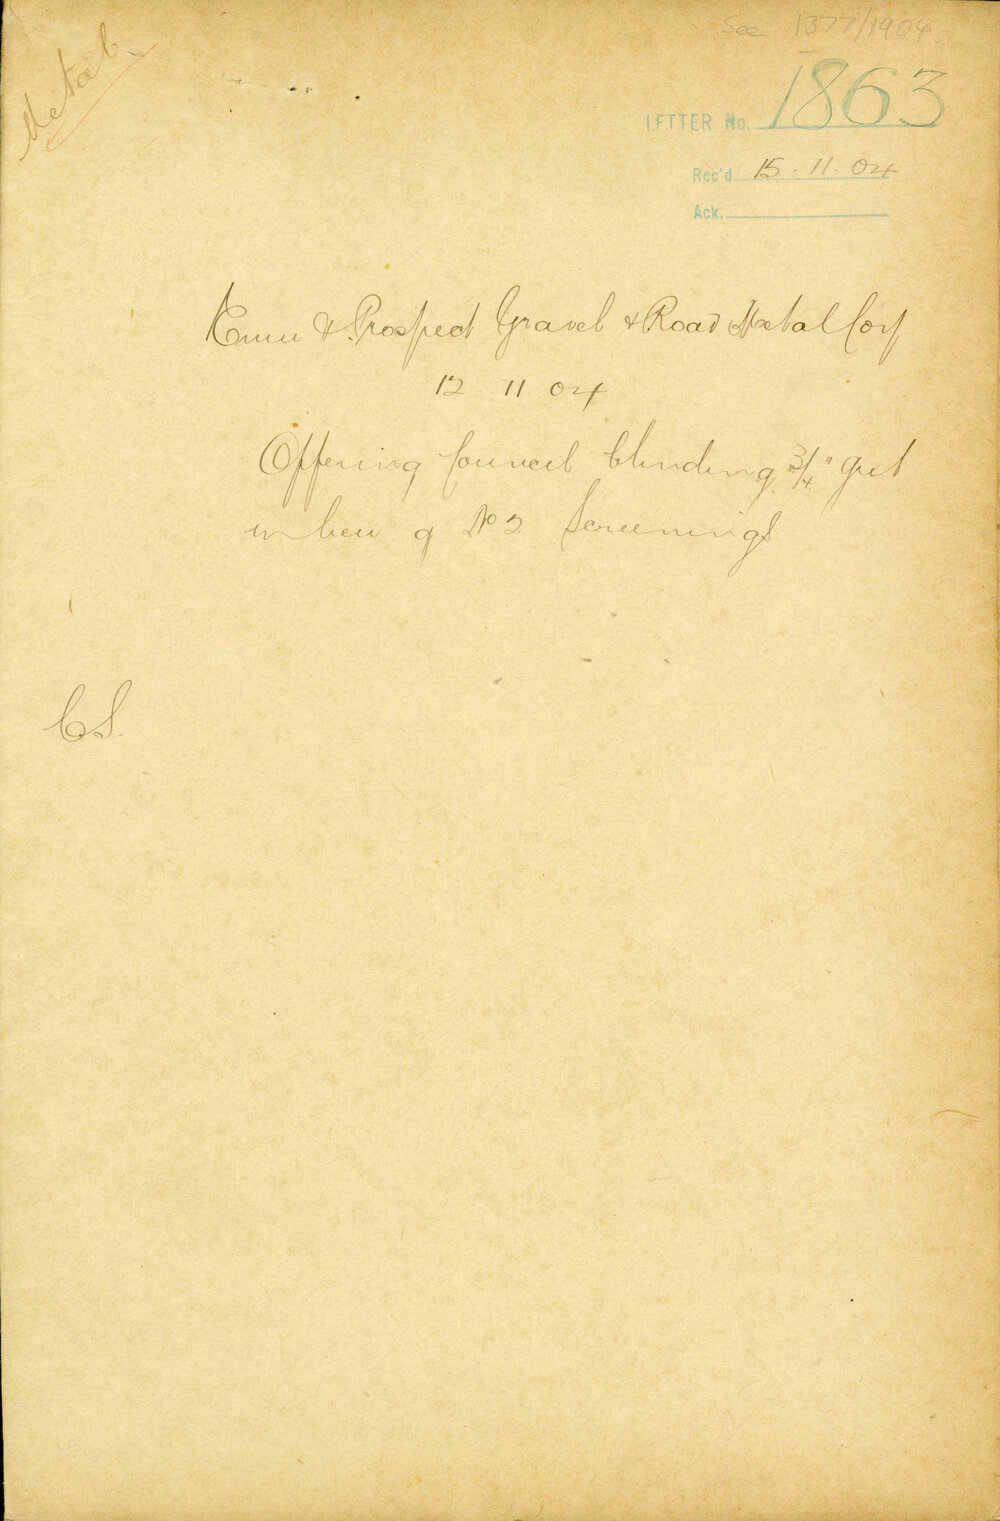 See 1377/1904
Metal
LETTER No. 1863
Rec'd 15.11.04
Ack.
Emu & Prospect Gravel & Road Metal Coy
12 11 04
Offering Council blinding 3/4" grit
in lieu of No 2 Screenings
CS.